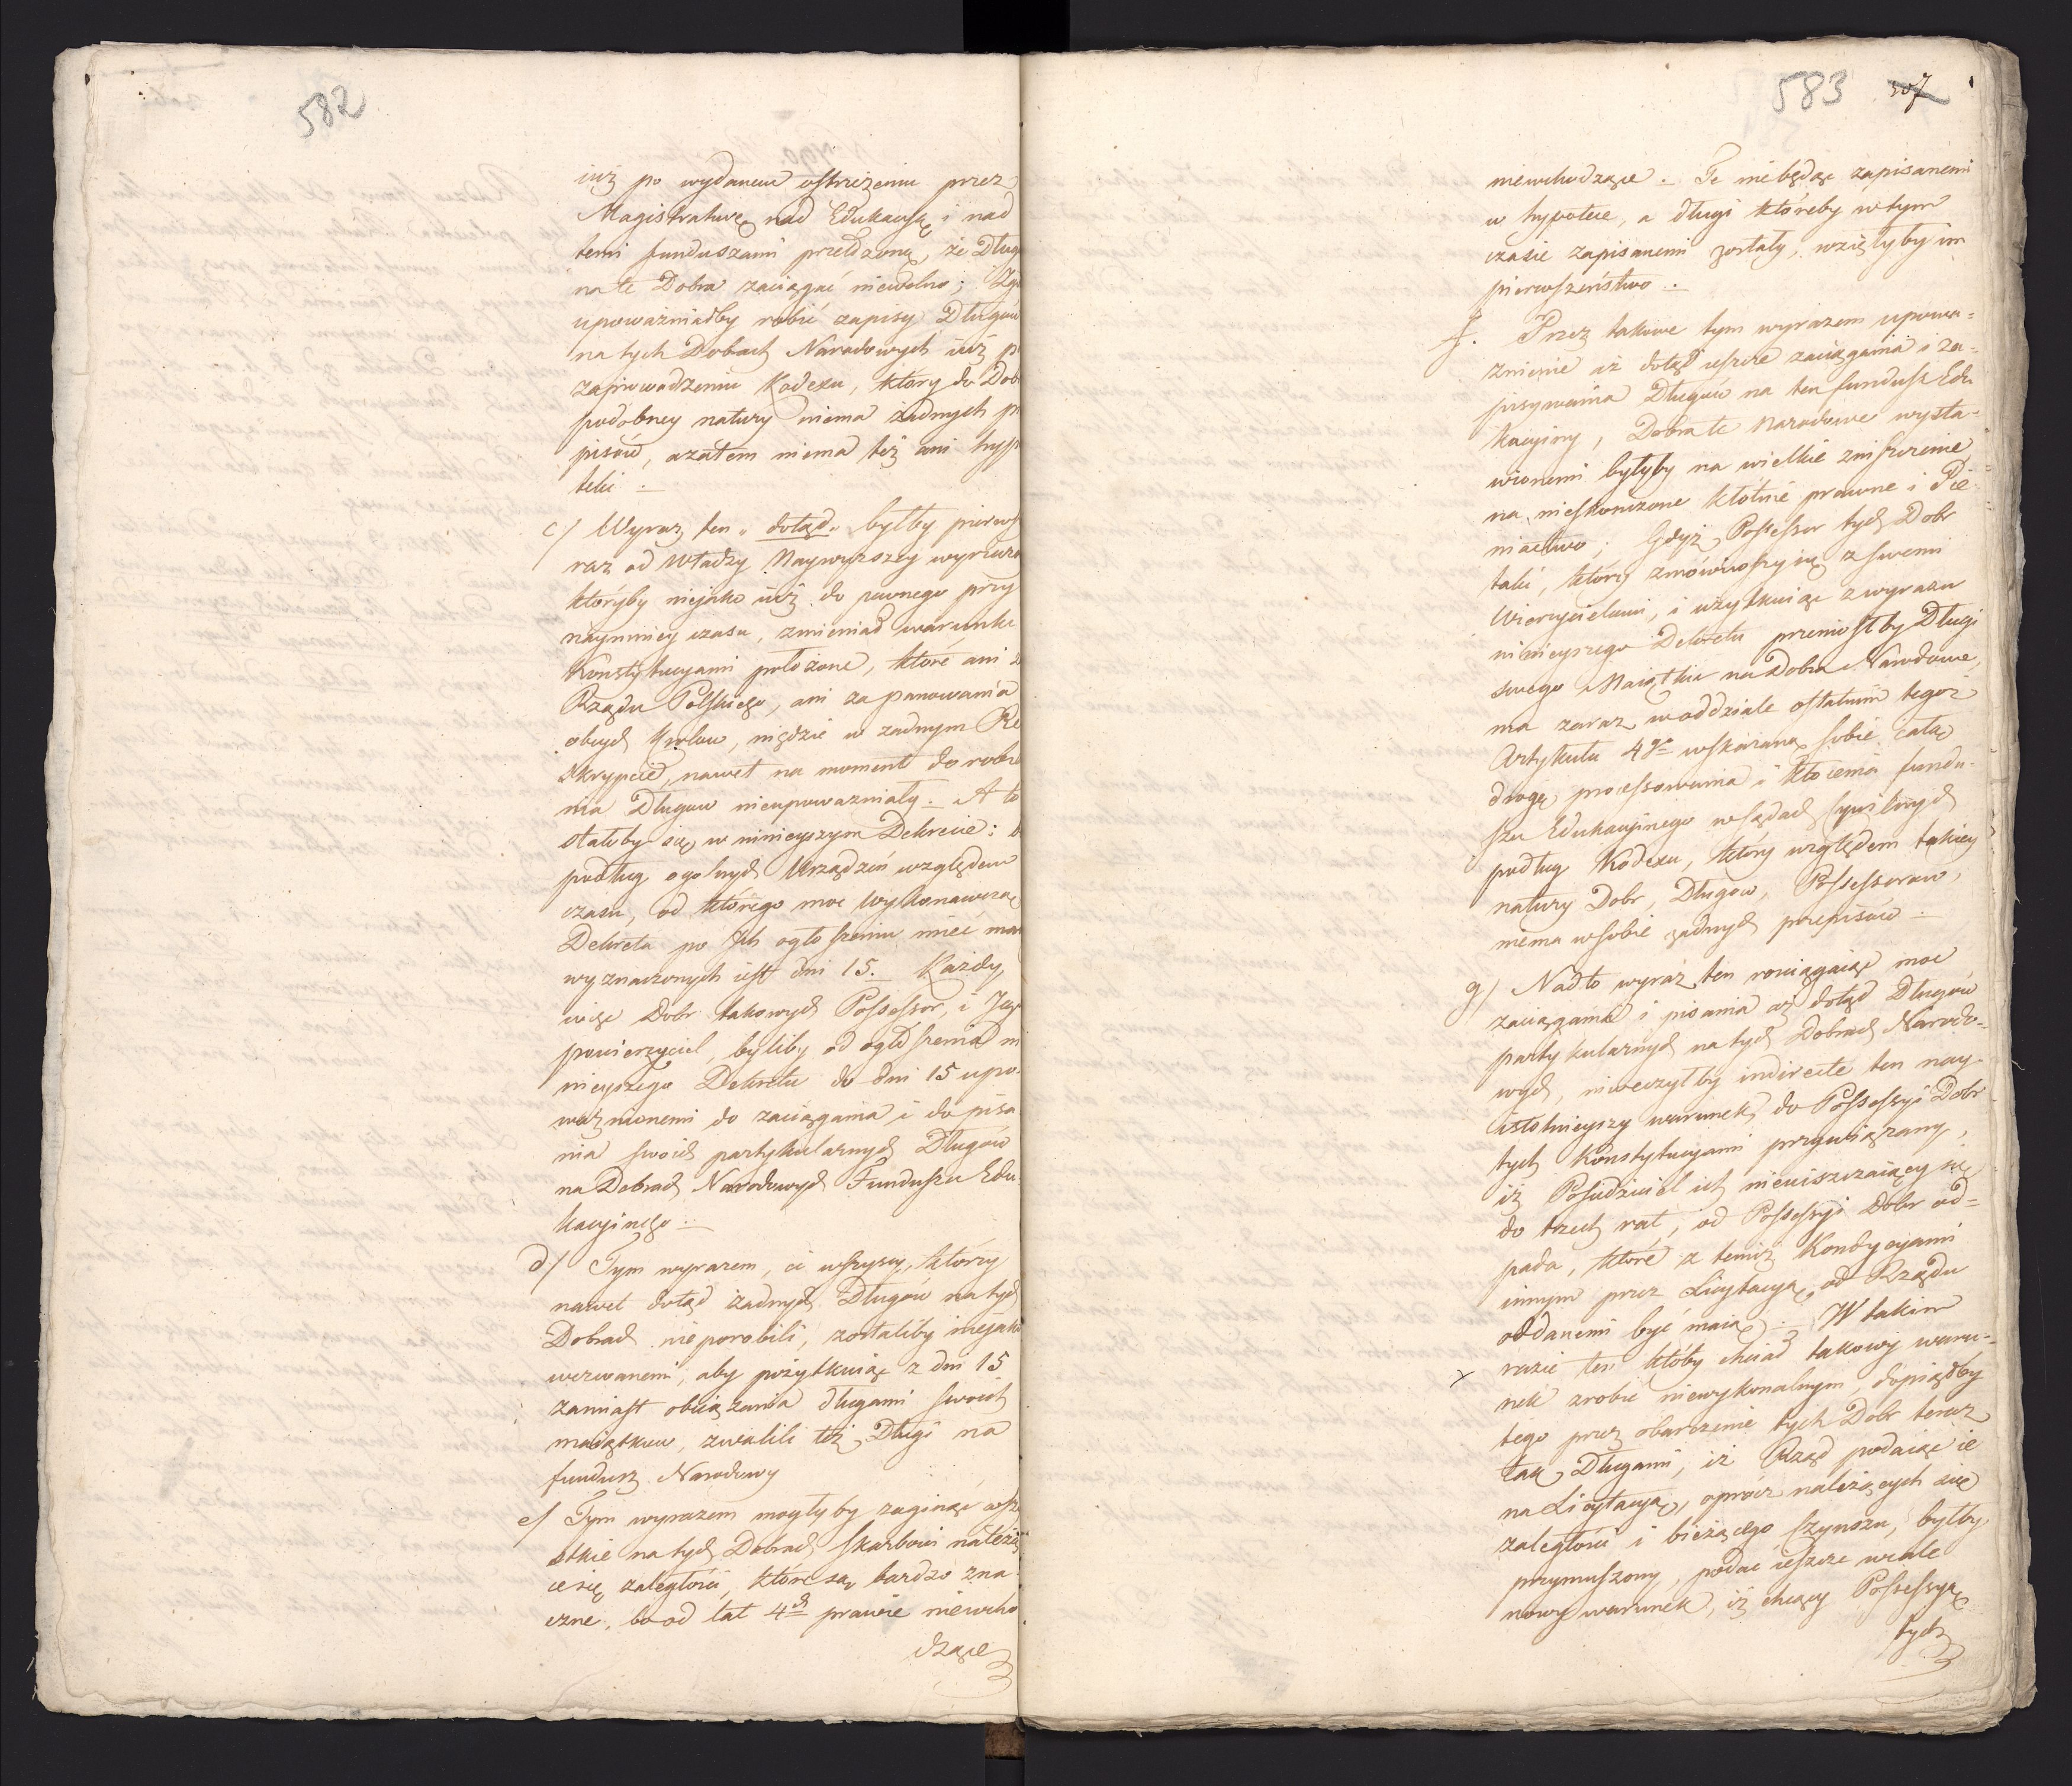 582
iuż po wydanem ostrzeżeniu przez
Magistraturę nad Edukacyą i nad
temi funduszami przełożoną, że Dług
na te Dobra zaciągać niewolno;
upoważniałby robić zapisy Długów
na tych Dobrach Narodowych iuż p
zaprowadzeniu Kodexu, który do Dob
podobney natury niema żadnych p
pisów, azatem niema też ani hypo
teki .
c/ Wyraz ten „ dotąd „ byłby pierwsz
raz od Władzy Naywyższey wyrzeczo
któryby niejako iuż do pewnego przy
naymniey czasu, zmieniał warunki
Konstytucyami położone, które ani z
Rządu Polskiego, ani za panowania
obcych Krolow, nigdzie w żadnym Re
skrypcie, nawet na moment do robie
nia Długow nieupoważniały . A to
stałoby się w ninieyszym Dekrecie;
podług ogolnych Urządzeń względem
czasu, od którego moc wykonawczą
Dekreta po Ich ogłoszeniu mieć ma
wyznaczonych iest dni 15. Każdy
więc Dobr takowych Possessor, i Jego
powierzyciel, byliby od ogłoszenia ni
nieyszego Dekretu do dni 15 upo-
ważnionemi do zaciągania i do pisa
nia swoich partykularnych Długów
na Dobrach Narodowych Funduszu Edu
kacyinego .
d/ Tym wyrazem, ci wszyscy, którzy
nawet dotąd żadnych Długów na tych
Dobrach nieporobili, zostaliby niejako
wezwanemi, aby pożytkuiąc z dni 15
zamiast obciążania długami swoich
maiątkow, zwalili też Długi na
fundusz Narodowy
e/ Tym wyrazem mogłyby zaginąć wsz
stkie na tych Dobrach Skarbowi należą
ce się zaległości, które są bardzo zna
czne, bo od lat 4ch prawie niewcho
dzące
583 307
niewchodzące . Te niebędąc zapisanemi
w hypotece, a długi któreby w tym
czasie zapisanemi zostały, wzięłyby im
pierwszeństwo .
f. Przez takowe tym wyrazem upowa=
żnienie iż dotąd ieszcze zaciągania i za=
pisywania Długów na ten fundusz Edu
kacyiny, Dobra te Narodowe wysta=
wionemi byłyby na wielkie zniszczenie
na nieskonczone kłótnie prawne i Pie
niactwo; Gdyż Possessor tych Dobr
taki, który zmówiwszy się z swemi
Wierzycielami, i użytkuiąc z wyrazu
ninieyszego Dekretu przeniosłby Długi
swego Maiątku na Dobra Narodowe,
ma zaraz w oddziale ostatnim tegoż
Artykułu 4go wskazaną sobie całą
drogę processowania i kłócenia fundu-
szu Edukacyinego w sądach cywilnych
podług Kodexu, który względem takiey
natury Dobr, Długow, Possessorow,
niema w sobie żadnych przepisów .
g/ Nadto wyraz ten rozciągaiąc moc
zaciągania i pisania aż dotąd Długów
partykularnych na tych Dobrach Narodo=
wych, niweczyłby indirecte ten nay-
istotnieyszy warunek do Possessyi Dobr
tych Konstytucyami przywiązany,
iż Posiadziciel ich nieuiszczaiący się
do trzech rat, od Possessyi Dobr od=
pada, które z temiż Kondycyami
innym przez Licytacyą od Rządu
oddanemi być maią . W takim
razie ten któby chciał takowy waru=
nek zrobić niewykonalnym, dopiąłby
tego przez obarczenie tych Dobr teraz
tak Długami, iż Rząd podaiąc ie
na Licytacyą, oprócz należących się
zaległości i bieżącego czynszu, byłby
przymuszony podać ieszcze wcale
nowy warunek, iż chcący Possessyą
tych